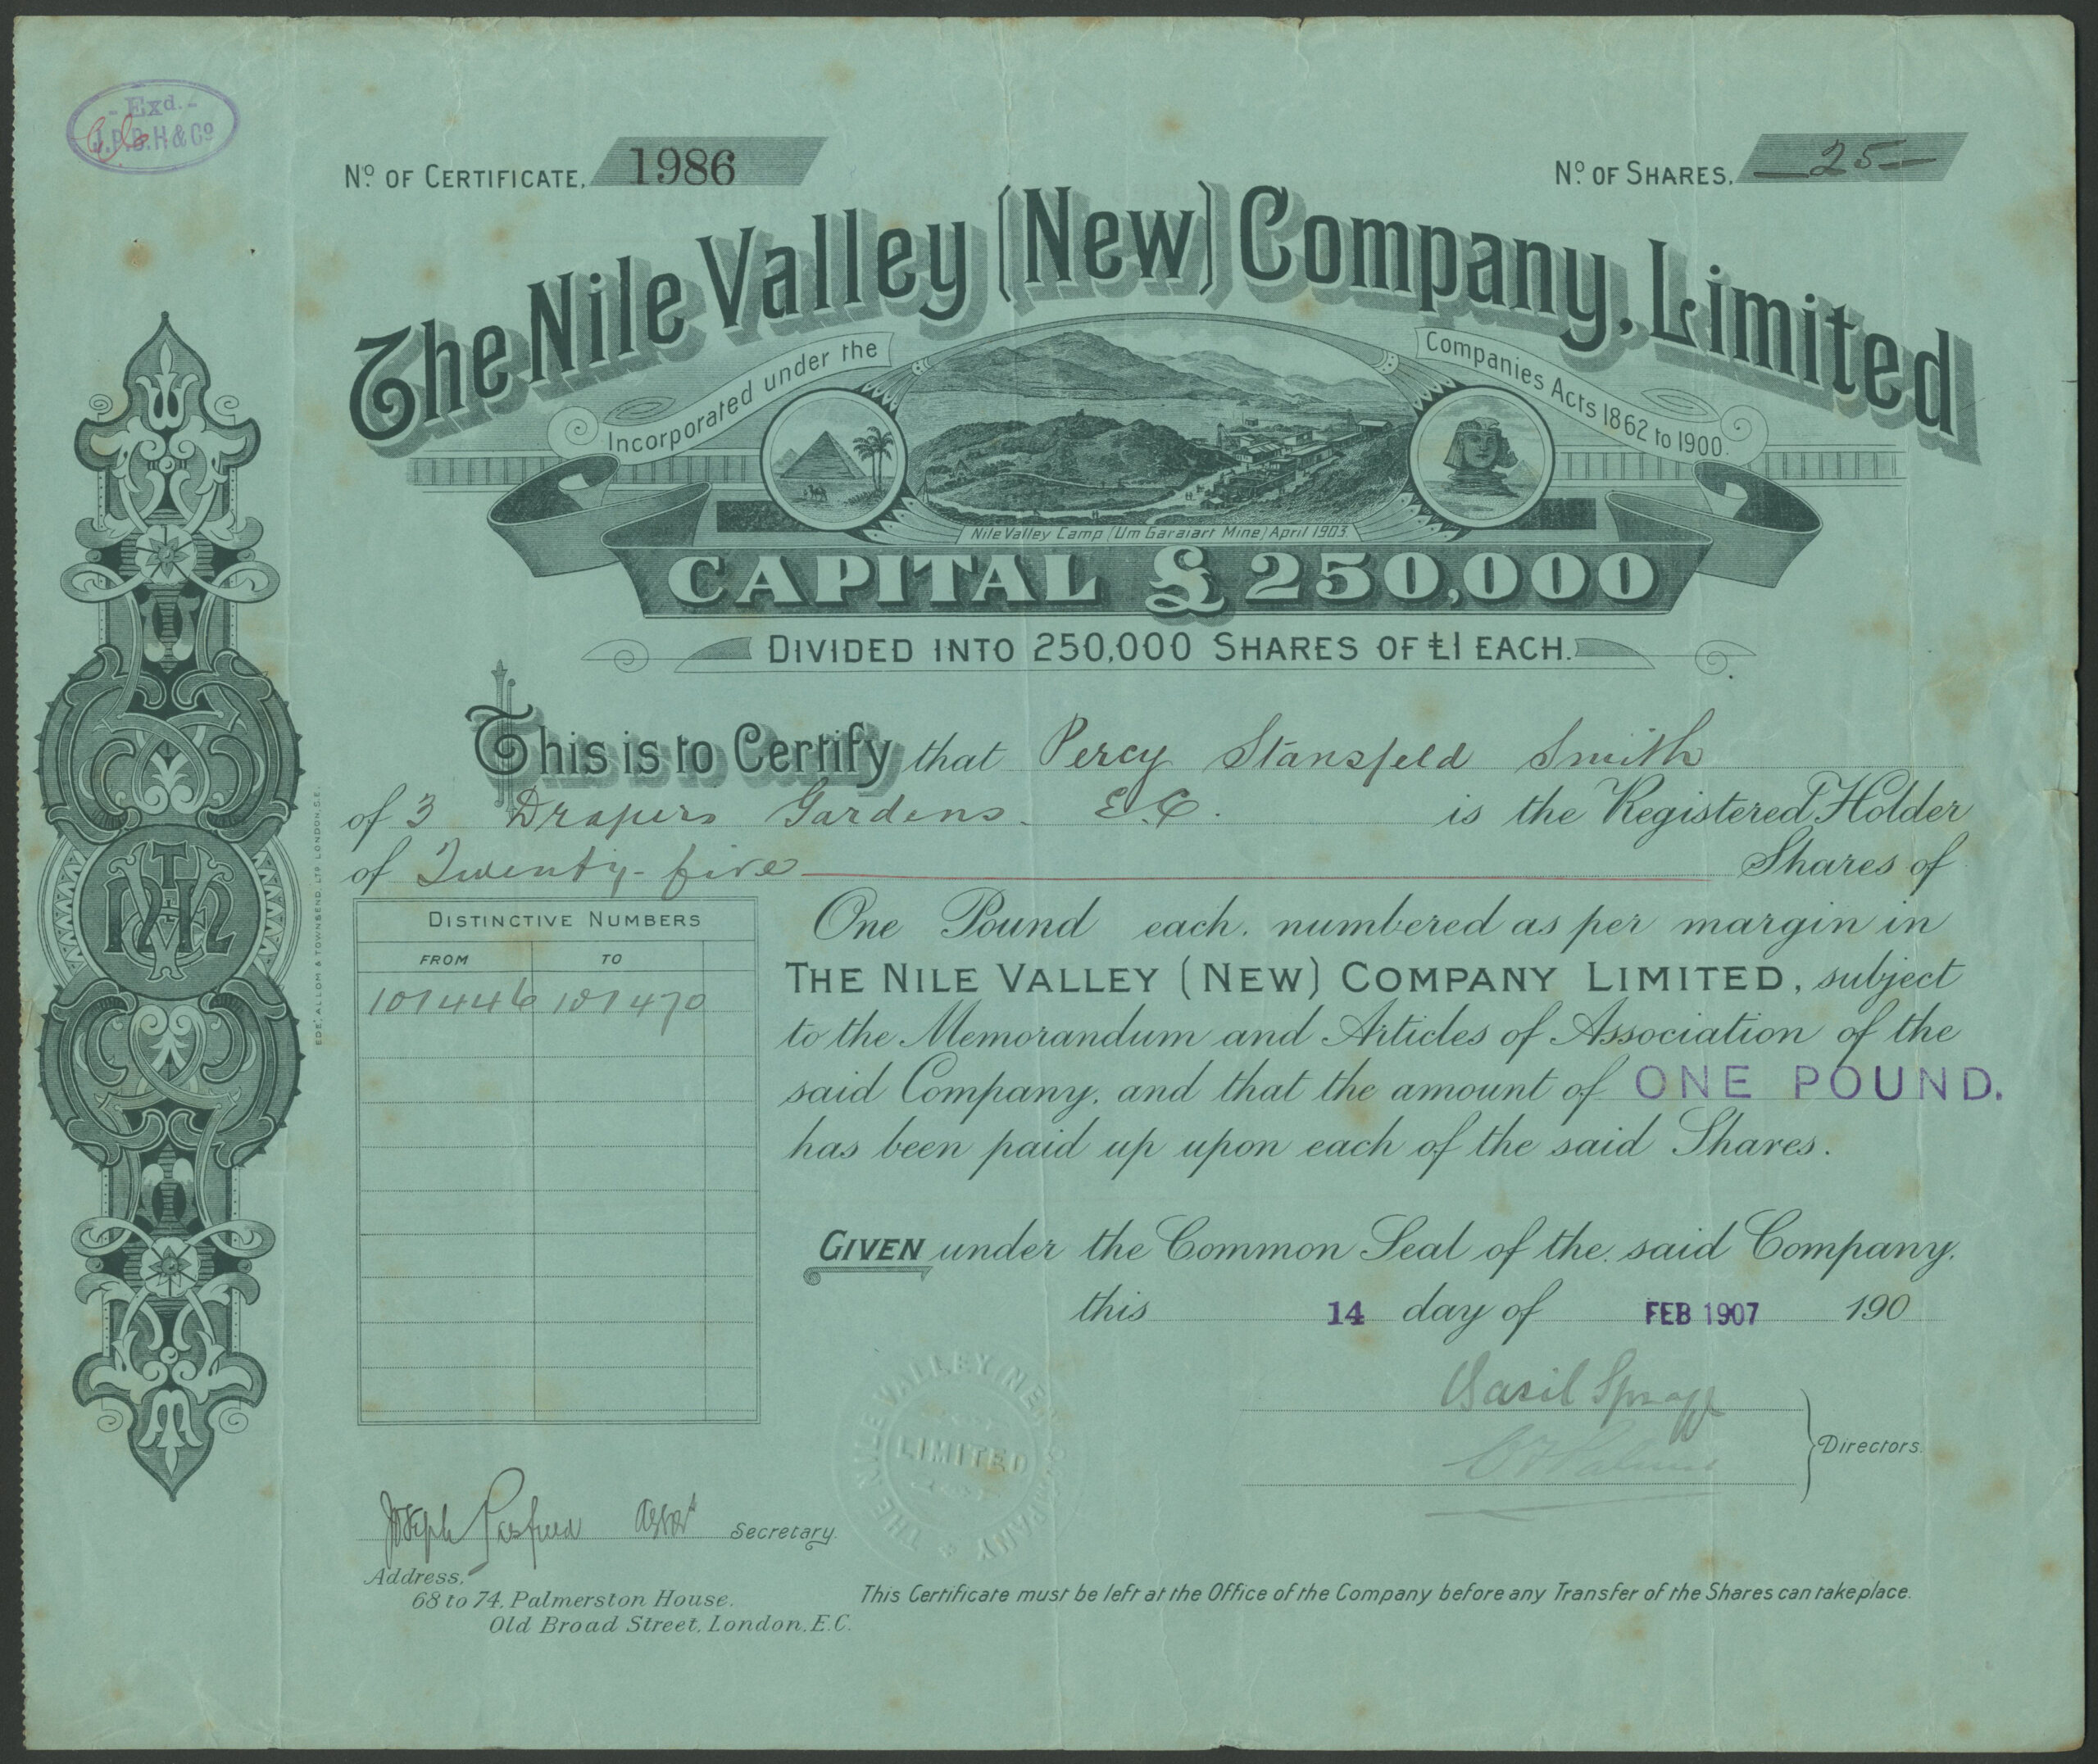 Exd.
J.P.B.H & Co
No. OF CERTIFICATE. 1986
No. OF SHARES. 25
The Nile Valley (New) Company, Limited
Incorporated under the Companies Acts 1862 to 1900.
Nile Valley Camp (Um Garaiart Mine) April 1903.
CAPITAL £250,000
DIVIDED INTO 250,000 SHARES OF £1 EACH.
This is to Certify that Percy Stansfeld Smith
of 3 Drapers Gardens. E.C. is the Registered Holder
of Twenty-five Shares of
One Pound each, numbered as per margin in
THE NILE VALLEY (NEW) COMPANY LIMITED, subject
to the Memorandum and Articles of Association of the
said Company, and that the amount of ONE POUND.
has been paid up upon each of the said Shares.
DISTINCTIVE NUMBERS
FROM TO
107446 107470
GIVEN under the Common Seal of the said Company.
this 14 day of FEB 1907 190
Directors.
THE NILE VALLEY (NEW) COMPANY
LIMITED
Joseph Asst Secretary.
Address.
68 to 74, Palmerston House.
Old Broad Street, London, E.C.
This Certificate must be left at the Office of the Company before any Transfer of the Shares can take place.
EDE, ALLOM & TOWNSEND, LTD LONDON, S.E.